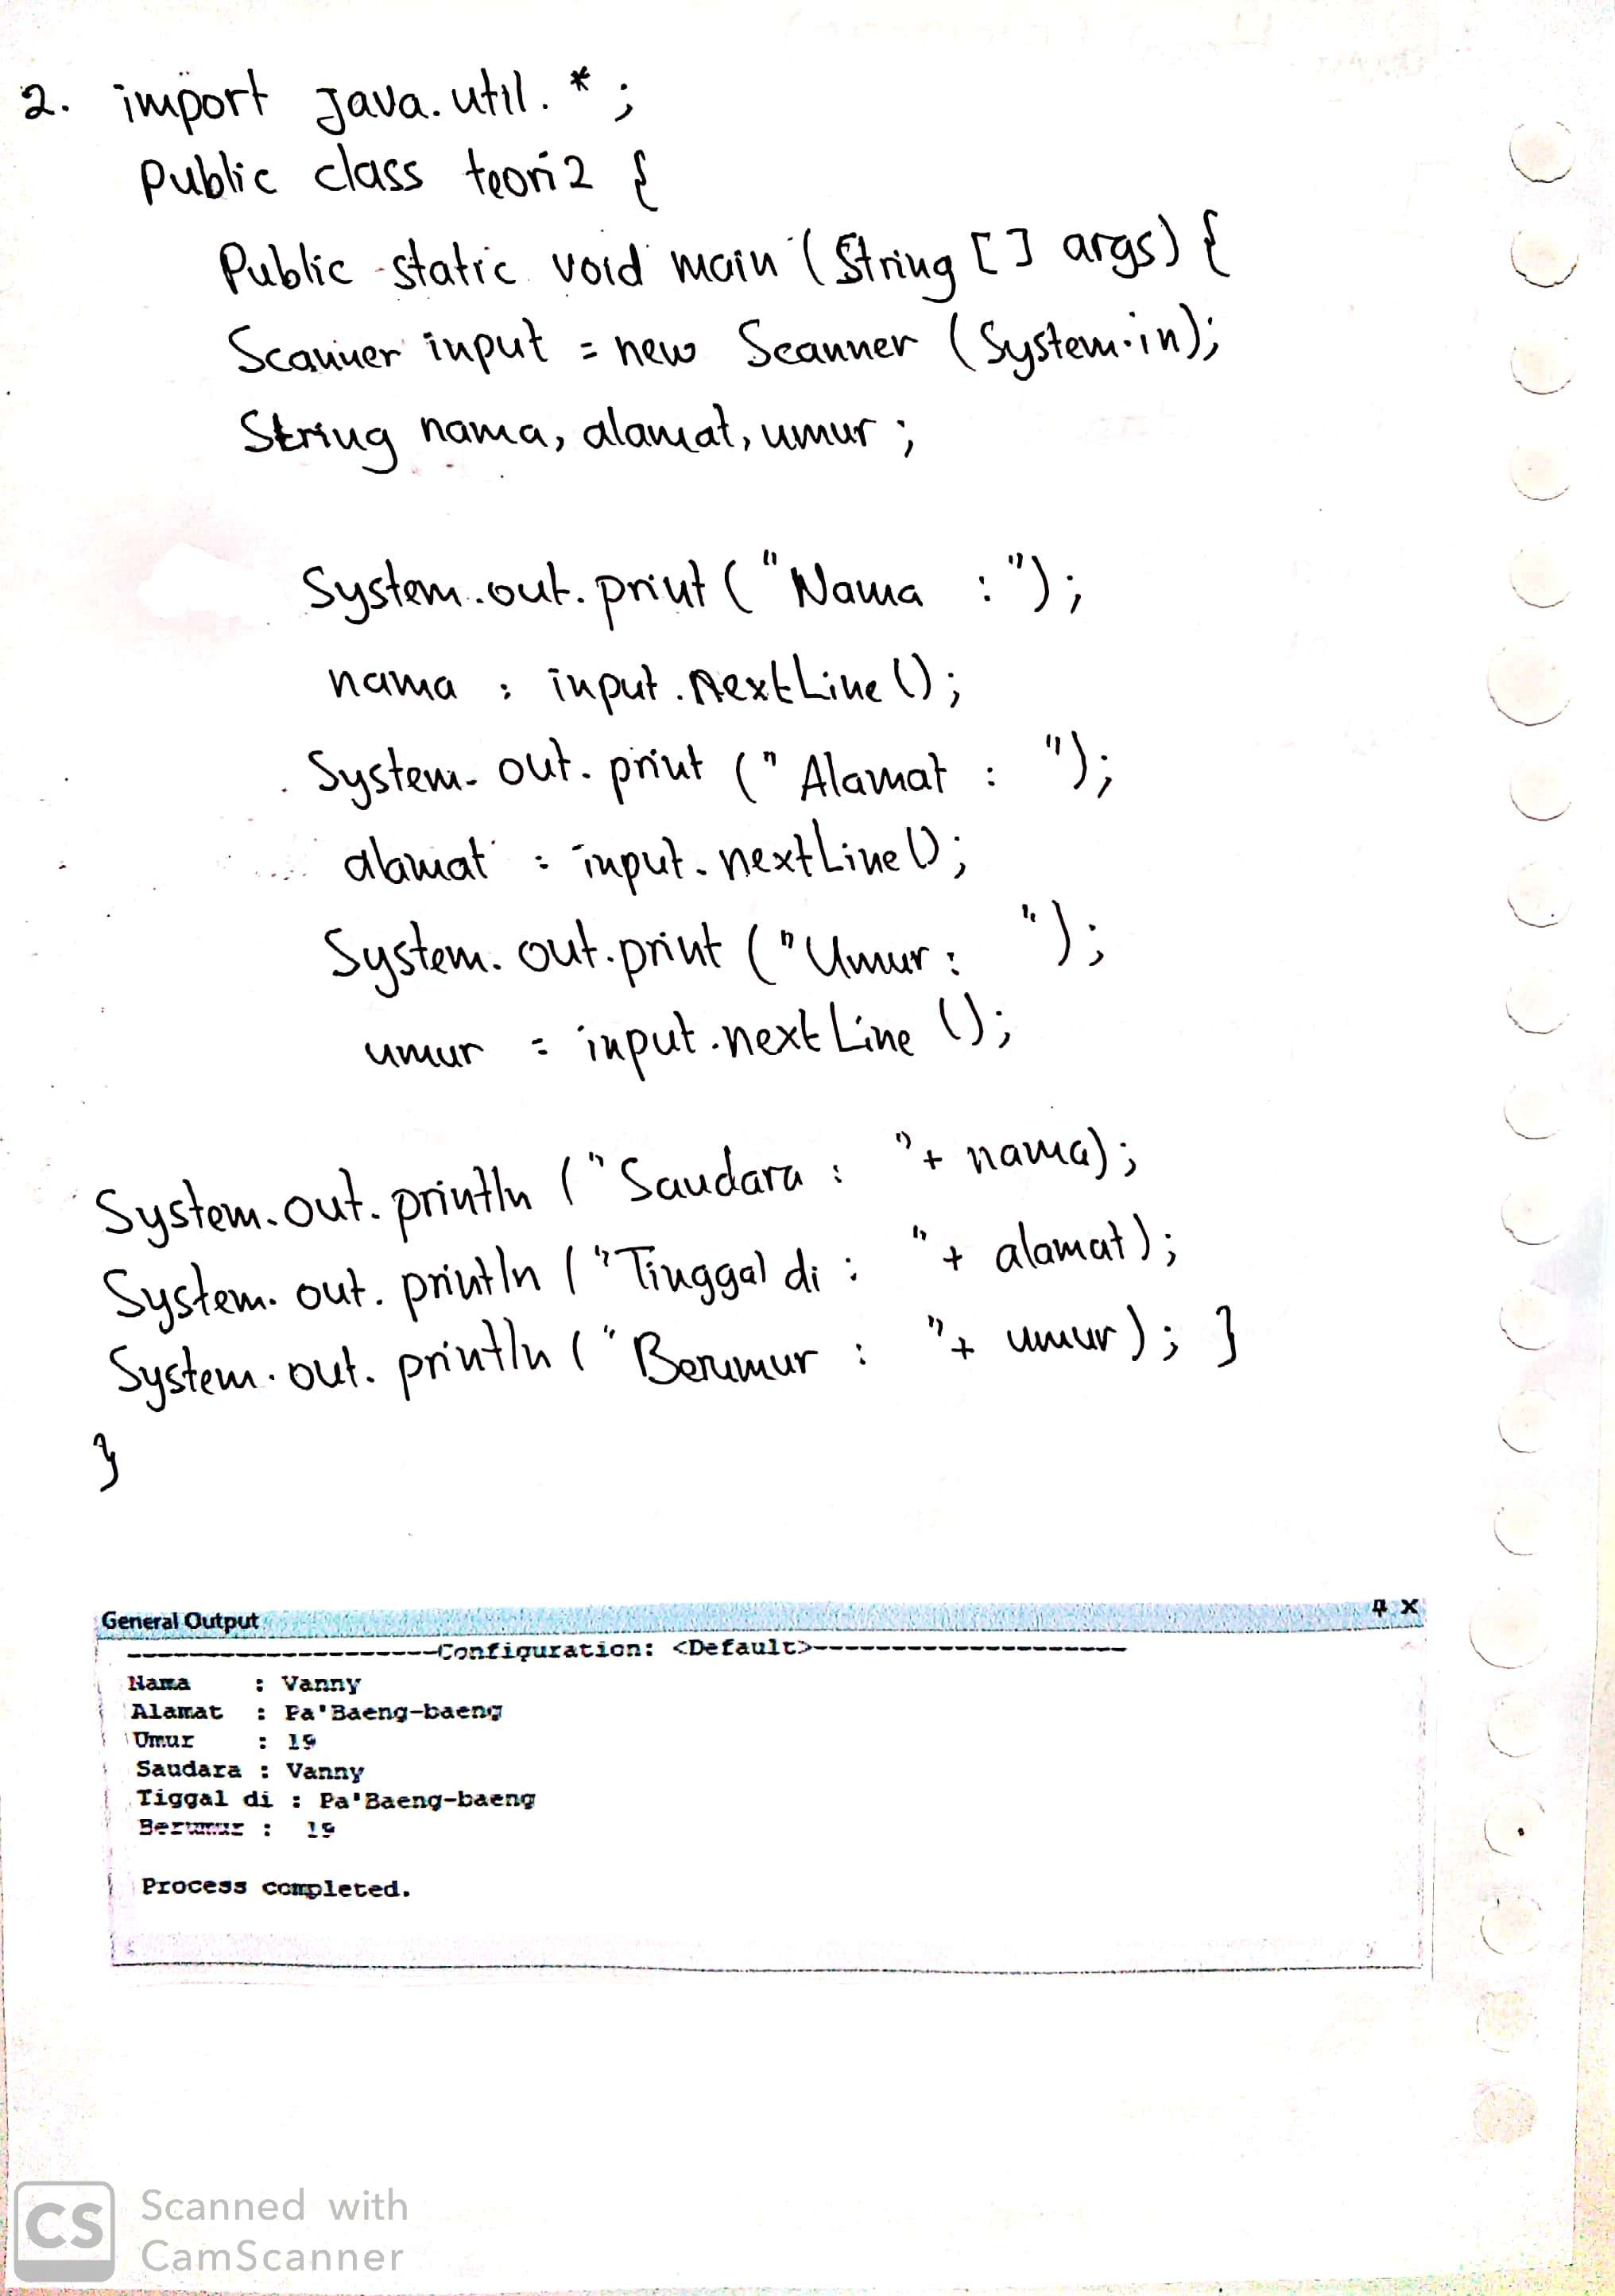 2. import java.util.*;
Public class teori2 {
Public static void main (String [] args) {
Scanner input = new Scanner (System.in);
String nama, alamat, umur ;
System.out.print ("Nama :");
nama : input.nextLine ();
System.out.print (" Alamat : ");
alamat = input.nextLine ();
System.out.print ("Umur : ");
umur = input.nextLine ();
System.out.println ("Saudara : "+ nama);
System.out.println ("Tinggal di : "+ alamat);
System.out.println ("Berumur : "+ umur); }
}
General Output
--------------------Configuration: <Default>--------------------
Nama : Vanny
Alamat : Pa'Baeng-baeng
Umur : 19
Saudara : Vanny
Tiggal di : Pa'Baeng-baeng
Berumur : 19
Process completed.
CS Scanned with
CamScanner